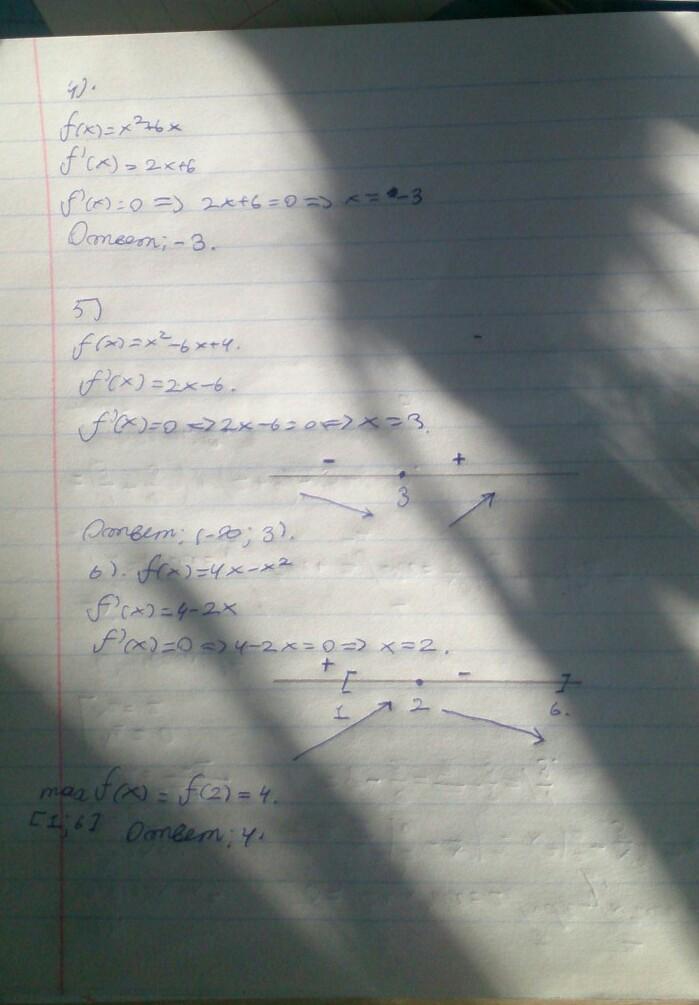 4).
f(x)=x²+6x
f'(x)=2x+6
f'(x)=0 => 2x+6=0 => x=-3
Ответ; -3.
5)
f(x)=x²-6x+4.
f'(x)=2x-6.
f'(x)=0 => 2x-6=0 => x=3.
- +
3
Ответ; (-∞; 3).
6). f(x)=4x-x²
f'(x)=4-2x
f'(x)=0 => 4-2x=0 => x=2.
+ [ - ]
1 2 6.
max f(x) = f(2)=4.
[1;6] Ответ; 4.